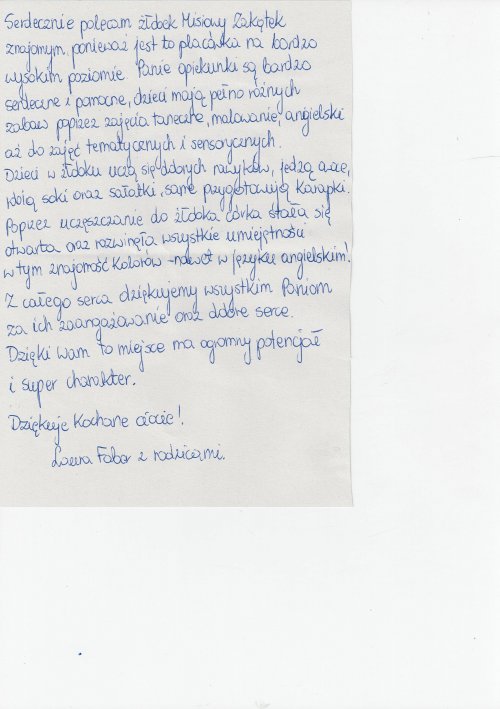 Serdecznie polecam żłobek Misiowy Zakątek
znajomym, ponieważ jest to placówka na bardzo
wysokim poziomie. Panie opiekunki są bardzo
serdeczne i pomocne, dzieci mają pełno różnych
zabaw poprzez zajęcia taneczne, malowanie, angielski
aż do zajęć tematycznych i sensorycznych.
Dzieci w żłobku uczą się dobrych nawyków, jedzą owoce,
robią soki oraz sałatki, same przygotowują kanapki.
Poprzez uczęszczanie do żłobka córka stała się
otwarta oraz rozwinęła wszystkie umiejętności
w tym znajomość kolorów - nawet w języku angielskim!
Z całego serca dziękujemy wszystkim Paniom
za ich zaangażowanie oraz dobre serce.
Dzięki Wam to miejsce ma ogromny potencjał
i super charakter.
Dziękuję Kochane ciocie!
Laura Faber z rodzicami.